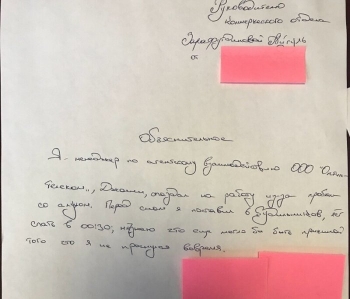 Руководителю
коммерческого отдела
Зарафутдиновой Айгуль
от
Объяснительное
Я - менеджер по клиентскому взаимодействию ООО
Телеком", опоздал на работу из-за пробле
со сном. Перед сном я поставил 6 будильников,
спать в 00:30, думаю что еще могло бы быть причиной
того что я не проснулся вовремя.